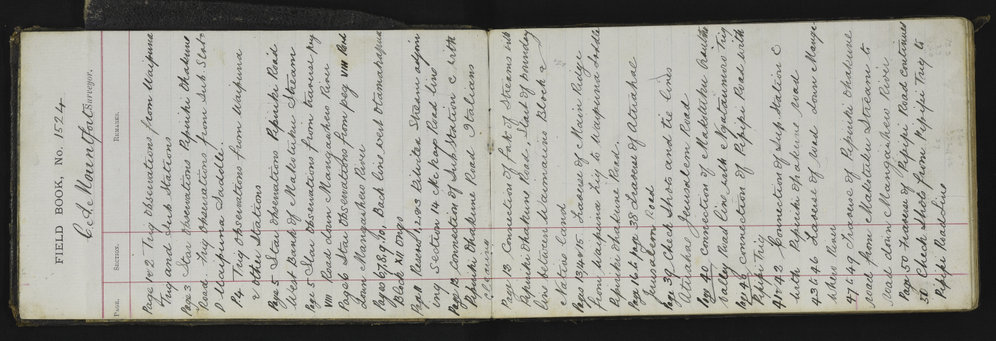 FIELD BOOK, No. 1524
C. A. Mountfort Surveyor.
PAGE. SECTION. REMARKS.
Page 1 & 2 Trig Observations from Waipuna
Trig and Sub Stations
Page 3 Star Observations Pipiriki Ohakune
Road. Trig Observations from Sub Stat
D Waipuna Saddle.
P4 Trig Observations from Waipuna
& other Stations
Page 5 Star Observations Pipiriki Road
West Bank of Makotuku Stream
Page 5 Star Observations from traverse peg
VIII Road down Mangaihere River
Page 6 Star Observations from peg VIII Road
down Mangaihere River
Pages 6, 7, 8, 9, 10. Back line west Otamatapua
Back XII Orgs
Page 11 Reserve 1, 2 & 3 Ditches Streams adjoin
ing Section 14 Road line
Page 12 Connection of Sub Station C with
Pipiriki Ohakune Road Italians
Clearing
Page 13 Connection of Fall of Streams with
Pipiriki Ohakune Road, Start of boundary
line between Waimarino Block &
Natives Land
Pages 13, 14 & 15 Traverse of Main Ridge
from Waipuna Trig to Waipuna Saddle
Pipiriki Ohakune Road.
Page 16 to Page 38 Traverse of Atuahae
Jerusalem Road
Page 39 Check Shots and tie lines
Atuahae Jerusalem Road
Page 40 Connection of Makotuku
Valley Road line with Ngatamoro Trig
Page 40 Connection of Pipipi Road with
Pipipi Trig
41 & 42 Connection of Sub Station C
with Pipiriki Ohakune road
43 to 46 Traverse of road down Manga
ihere River
47 to 49 Traverse of Pipiriki Ohakune
road from Makotuku Stream to
road down Mangaihere River
Page 50 Traverse of Pipipi Road continues
50 Check Shots from Pipipi Trig to
Pipipi Road line